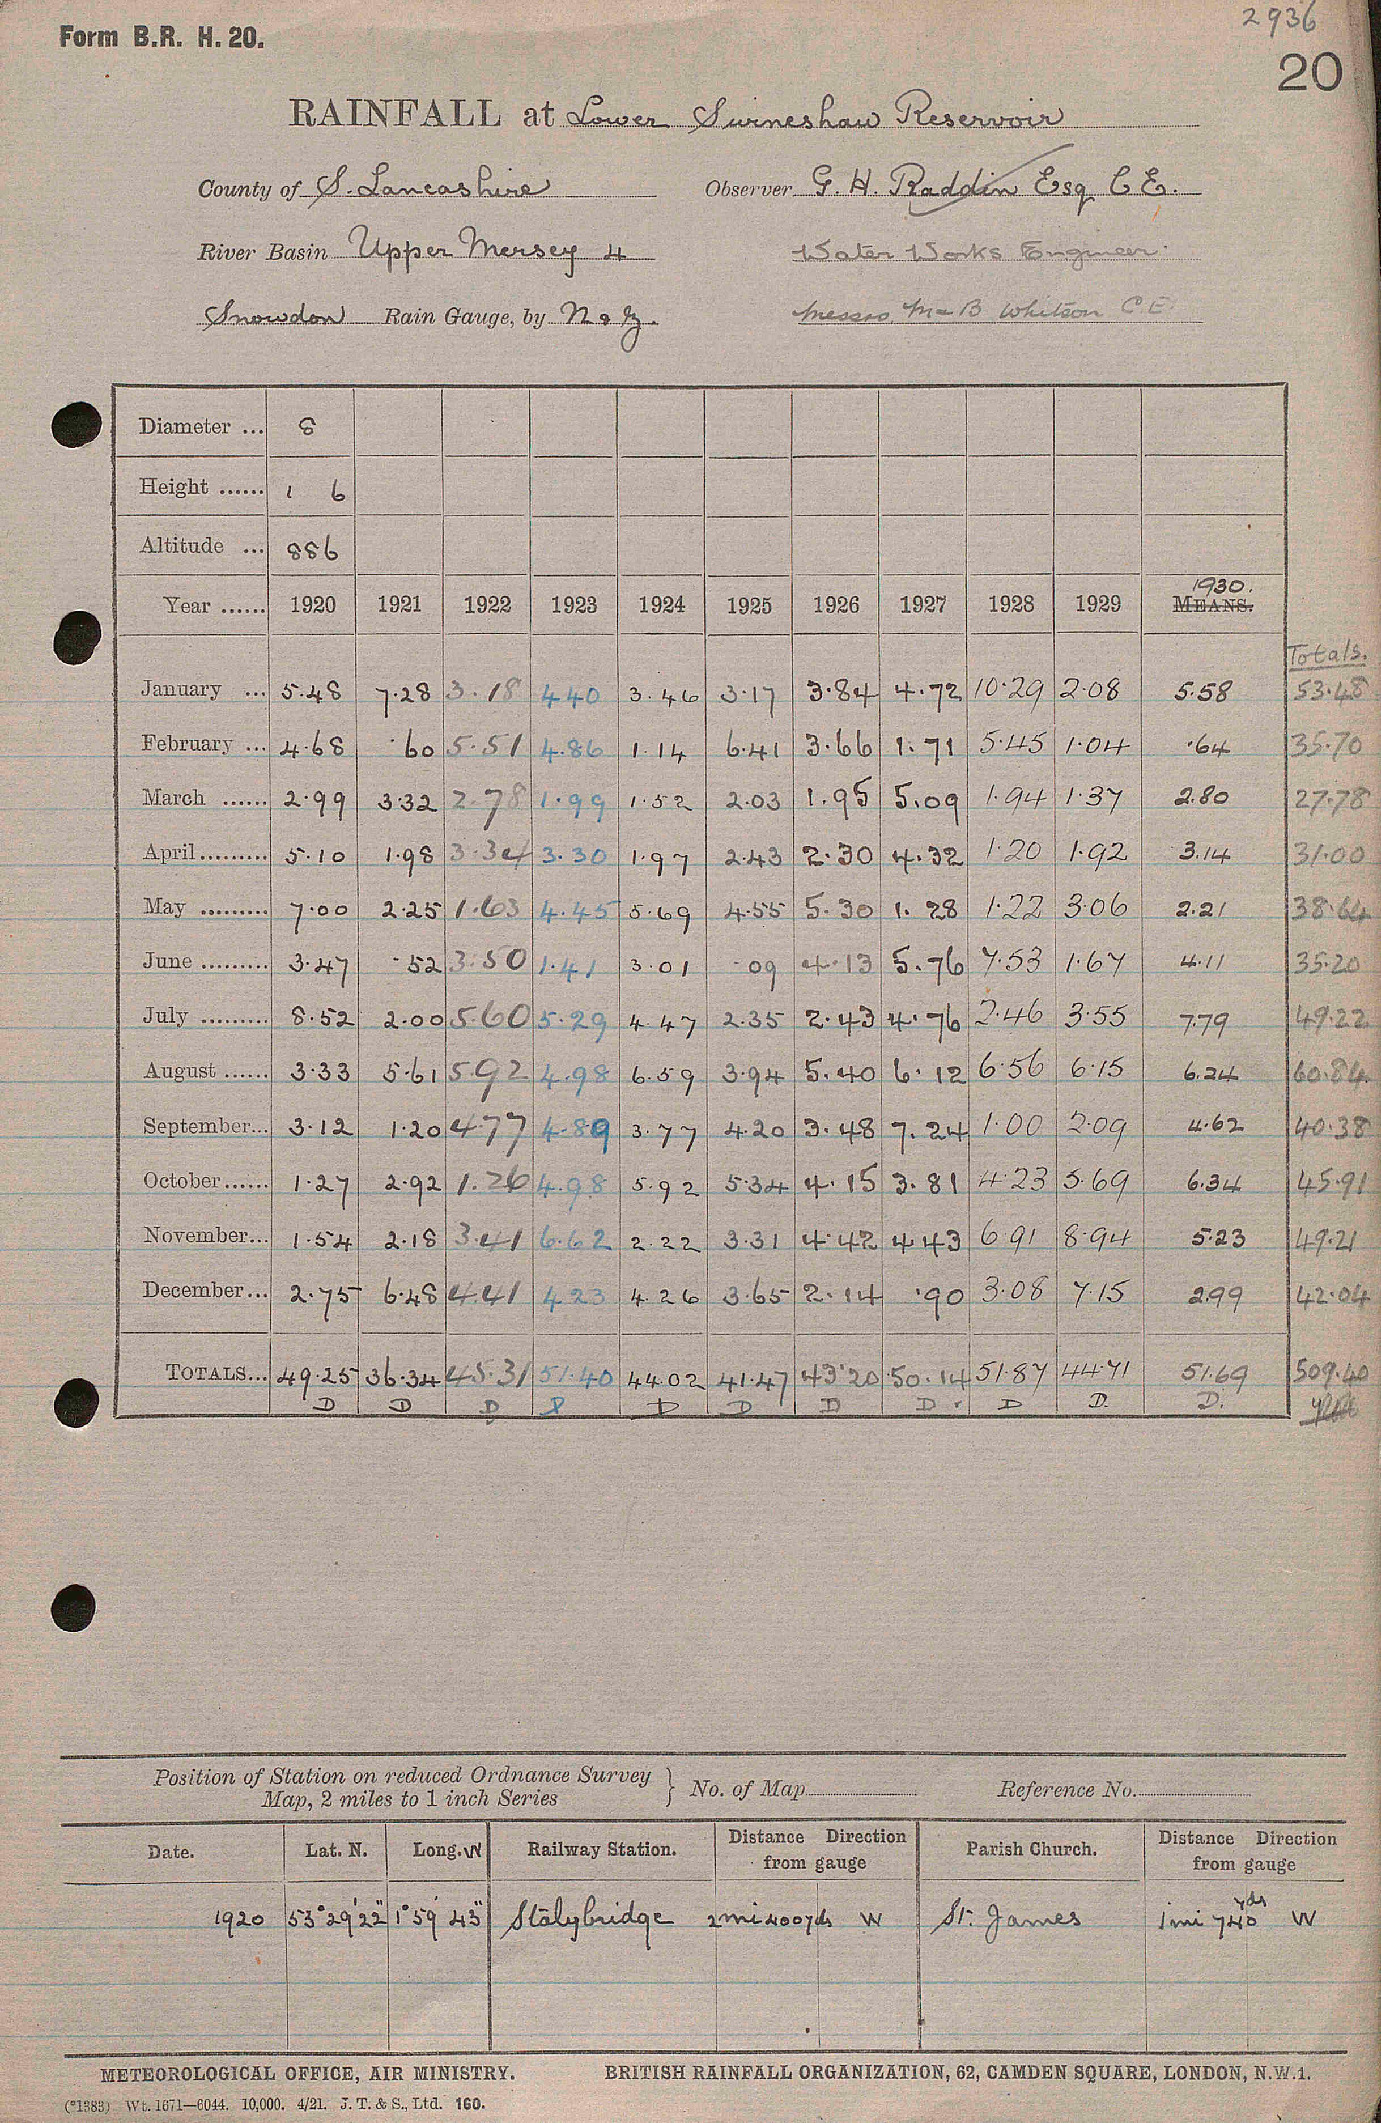 2936
Form B.R. H. 20.
20
RAINFALL at Lower Swineshaw Reservoir
County of S. Lancashire Observer G. H. Raddin Esq C E.
River Basin Upper Mersey 4 Water Works Engineer
Snowdon Rain Gauge, by N & Z. Messrs. Mc B Whitson C.E.
Diameter ... 8
Height ...... 1 6
Altitude ... 886
1930.
Year ...... 1920 1921 1922 1923 1924 1925 1926 1927 1928 1929 MEANS.
Totals.
January ... 5.48 7.28 3.18 4.40 3.46 3.17 3.84 4.72 10.29 2.08 5.58 53.48
February ... 4.68 .60 5.51 4.86 1.14 6.41 3.66 1.71 5.45 1.04 .64 35.70
March ...... 2.99 3.32 2.78 1.99 1.52 2.03 1.95 5.09 1.94 1.37 2.80 27.78
April ......... 5.10 1.98 3.34 3.30 1.97 2.43 2.30 4.32 1.20 1.92 3.14 31.00
May ......... 7.00 2.25 1.63 4.45 5.69 4.55 5.30 1.28 1.22 3.06 2.21 38.64
June ......... 3.47 .52 3.50 1.41 3.01 .09 4.13 5.76 7.53 1.67 4.11 35.20
July ......... 8.52 2.00 5.60 5.29 4.47 2.35 2.43 4.76 2.46 3.55 7.79 49.22
August ...... 3.33 5.61 5.92 4.98 6.59 3.94 5.40 6.12 6.56 6.15 6.24 60.84
September... 3.12 1.20 4.77 4.89 3.77 4.20 3.48 7.24 1.00 2.09 4.62 40.38
October...... 1.27 2.92 1.26 4.98 5.92 5.34 4.15 3.81 4.23 5.69 6.34 45.91
November... 1.54 2.18 3.41 6.62 2.22 3.31 4.42 4.43 6.91 8.94 5.23 49.21
December... 2.75 6.48 4.41 4.23 4.26 3.65 2.14 .90 3.08 7.15 2.99 42.04
TOTALS... 49.25 36.34 45.31 51.40 44.02 41.47 43.20 50.14 51.87 44.71 51.69 509.40
D D D D D D D D. D D. D.
Position of Station on reduced Ordnance Survey
Map, 2 miles to 1 inch Series } No. of Map Reference No.
Date. Lat. N. Long. W Railway Station. Distance Direction from gauge Parish Church. Distance Direction from gauge
1920 53° 29' 22" 1° 59' 43" Stalybridge 2 mi 400 yds W St. James 1 mi 740 yds W
METEOROLOGICAL OFFICE, AIR MINISTRY. BRITISH RAINFALL ORGANIZATION, 62, CAMDEN SQUARE, LONDON, N.W.1.
(*1383) Wt. 1671—6044. 10,000. 4/21. J. T. & S., Ltd. 160.